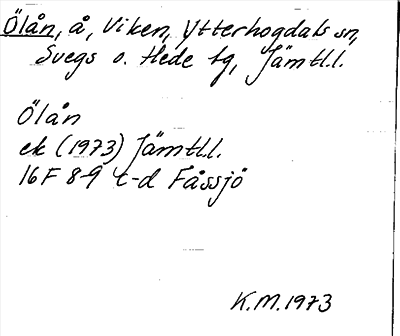 Ölån, å, Viken, Ytterhogdals sn,
Svegs o. Hede tg, Jämtl.l.
Ölån
ek (1973) Jämtl.l.
16F 8-9 c-d Fåssjö
K.M. 1973